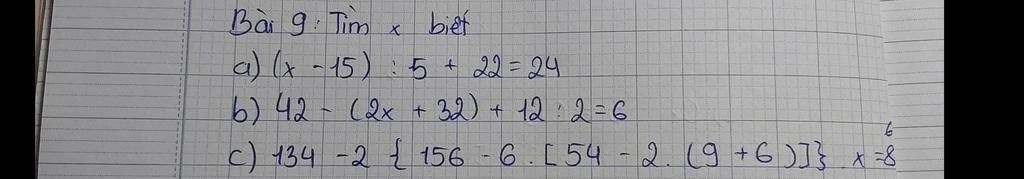 Bài 9: Tìm x biết
a) (x - 15) : 5 + 22 = 24
b) 42 - (2x + 32) + 12 : 2 = 6
6
c) 134 - 2 { 156 - 6 . [ 54 - 2 . (9 + 6 ) ] } x = 8